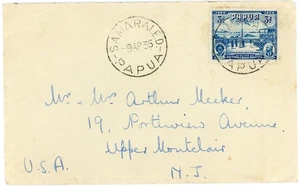 SAMARAI ED
-9 AP 35
PAPUA
PAPUA
3d 3d
PAPUA
Mr. Mrs Arthur Meeker,
19, Northview Avenue,
Upper Montclair
U.S.A. N. J.